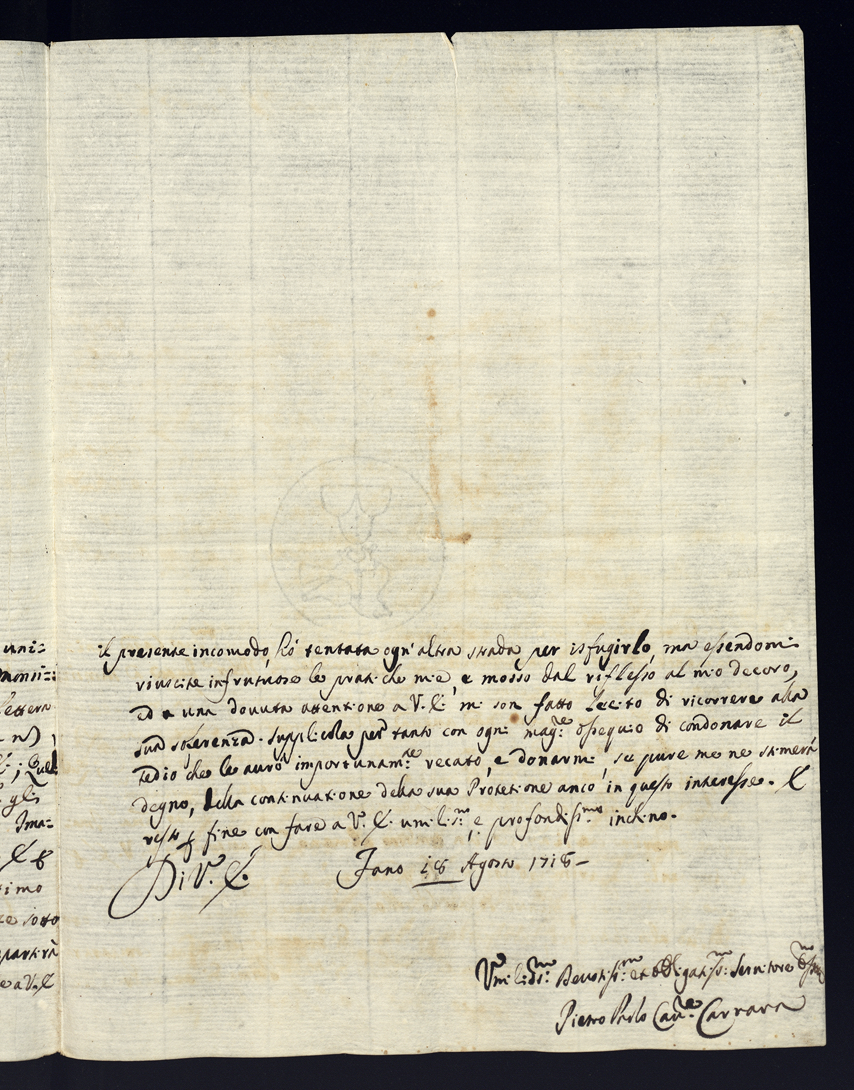 uni=
monsi=
lettera
n),
; Qui
gli
Ima=
timo
te sotto
partirà
e a V. E
il presente incomodo hó tentata ogn'altra strada per isfugirlo, ma essendomi
riuscite infrutuose le pratiche mie, e mosso dal riflesso al mio decoro,
ed a una dovuta attentione a V. E. mi son fatto lecito di ricorrere alla
sua soferenza. Supplicola per tanto con ogni mag.re ossequio di condonare il
tedio che le auró importunam.te recato, e donarmi se pure me ne stimerà
degno, della continuatione della sua Protetione anco in questo interesse. E
resto fine con fare a V. E. umilis.mo e profondis.mo inchino.
Di V. E.
Fano 18 Agosto 1718
Umilis.mo Devotis.mo et obligatis.mo Servitore
Pietro Paolo Cav.re Carrara